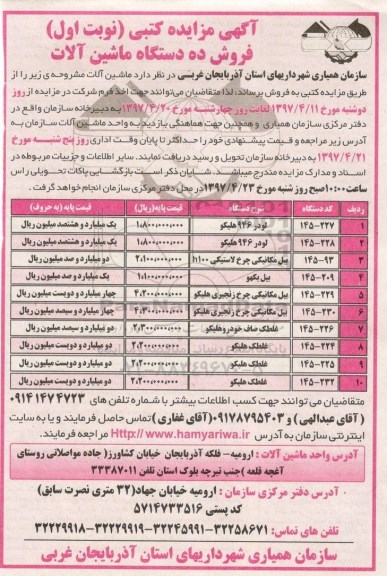 آگهی مزایده کتبی (نوبت اول)
فروش ده دستگاه ماشین آلات
سازمان همیاری شهرداریهای استان آذربایجان غربی در نظر دارد ماشین آلات مشروحه ی زیر را از
طریق مزایده کتبی به فروش برساند، لذا متقاضیان می‌توانند جهت اخذ فرم شرکت در مزایده از روز
دوشنبه مورخ ۱۳۹۷/۴/۱۱ لغایت روز چهارشنبه مورخ ۱۳۹۷/۴/۲۰ به دبیرخانه سازمان واقع در
دفتر مرکزی سازمان همیاری و همچنین جهت هماهنگی بازدید به واحد ماشین آلات سازمان به
آدرس زیر مراجعه و قیمت پیشنهادی خود را حداکثر تا پایان وقت اداری روز پنج شنبه مورخ
۱۳۹۷/۴/۲۱ به دبیرخانه سازمان تحویل و رسید دریافت نمایند. سایر اطلاعات و جزییات مربوطه در
اسناد و مدارک مزایده مندرج میباشد. شایان ذکر است بازگشایی پاکات تحویلی راس
ساعت ۱۰:۰۰ صبح روز شنبه مورخ ۱۳۹۷/۴/۲۳ در محل دفتر مرکزی سازمان انجام خواهد گرفت.
ردیف کد دستگاه شرح دستگاه قیمت پایه (ریال) قیمت پایه (به حروف)
۱ ۱۴۵-۲۲۷ لودر ۹۳۶ هلپکو ۱،۸۰۰،۰۰۰،۰۰۰ یک میلیارد و هشتصد میلیون ریال
۲ ۱۴۵-۲۲۸ لودر ۹۳۶ هلپکو ۱،۸۰۰،۰۰۰،۰۰۰ یک میلیارد و هشتصد میلیون ریال
۳ ۱۴۵-۹۳ بیل مکانیکی چرخ لاستیکی h۱۰۰ ۲،۱۰۰،۰۰۰،۰۰۰ دو میلیارد و صد میلیون ریال
۴ ۱۴۵-۲۰۹ بیل بکهو ۱،۱۰۰،۰۰۰،۰۰۰ یک میلیارد و صد میلیون ریال
۵ ۱۴۵-۲۲۹ بیل مکانیکی چرخ زنجیری هلپکو ۴،۲۰۰،۰۰۰،۰۰۰ چهار میلیارد و دویست میلیون ریال
۶ ۱۴۵-۲۳۰ بیل مکانیکی چرخ زنجیری هلپکو ۴،۳۰۰،۰۰۰،۰۰۰ چهار میلیارد و سیصد میلیون ریال
۷ ۱۴۵-۲۲۶ غلطک صاف خودرو هلپکو ۲،۳۰۰،۰۰۰،۰۰۰ دو میلیارد و سیصد میلیون ریال
۸ ۱۴۵-۲۲۴ غلطک هلپکو ۲،۲۰۰،۰۰۰،۰۰۰ دو میلیارد و دویست میلیون ریال
۹ ۱۴۵-۲۲۵ غلطک هلپکو ۲،۲۰۰،۰۰۰،۰۰۰ دو میلیارد و دویست میلیون ریال
۱۰ ۱۴۵-۲۳۲ غلطک هلپکو ۲،۲۰۰،۰۰۰،۰۰۰ دو میلیارد و دویست میلیون ریال
متقاضیان می توانند جهت کسب اطلاعات بیشتر با شماره تلفن های ۰۹۱۴۱۴۷۴۷۲۳
(آقای عبدالهی) و ۰۹۱۷۸۷۹۵۴۰۳ (آقای غفاری) تماس حاصل فرمایند و یا به سایت
اینترنتی سازمان به آدرس http://www.hamyariwa.ir مراجعه فرمایند.
آدرس واحد ماشین آلات : ارومیه- فلکه آذربایجان خیابان کشاورز( جاده مواصلاتی روستای
آغچه قلعه )جنب تیرچه بلوک استان تلفن ۳۳۳۸۷۰۱۱
آدرس دفتر مرکزی سازمان : ارومیه خیابان جهاد(۳۲ متری نصرت سابق)
کد پستی ۵۷۱۴۷۳۳۵۱۶
تلفن های تماس: ۳۲۲۵۸۶۷۱-۳۲۲۴۵۹۹۱-۳۲۲۲۹۹۱۹-۳۲۲۲۹۹۱۸
سازمان همیاری شهرداریهای استان آذربایجان غربی